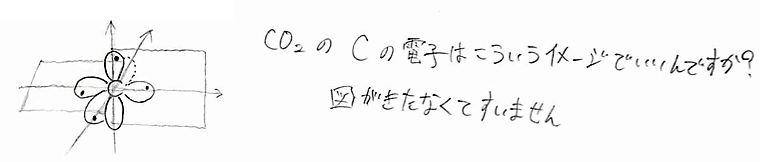 CO₂の Cの電子はこういうイメージでいいんですか?
図がきたなくてすいません